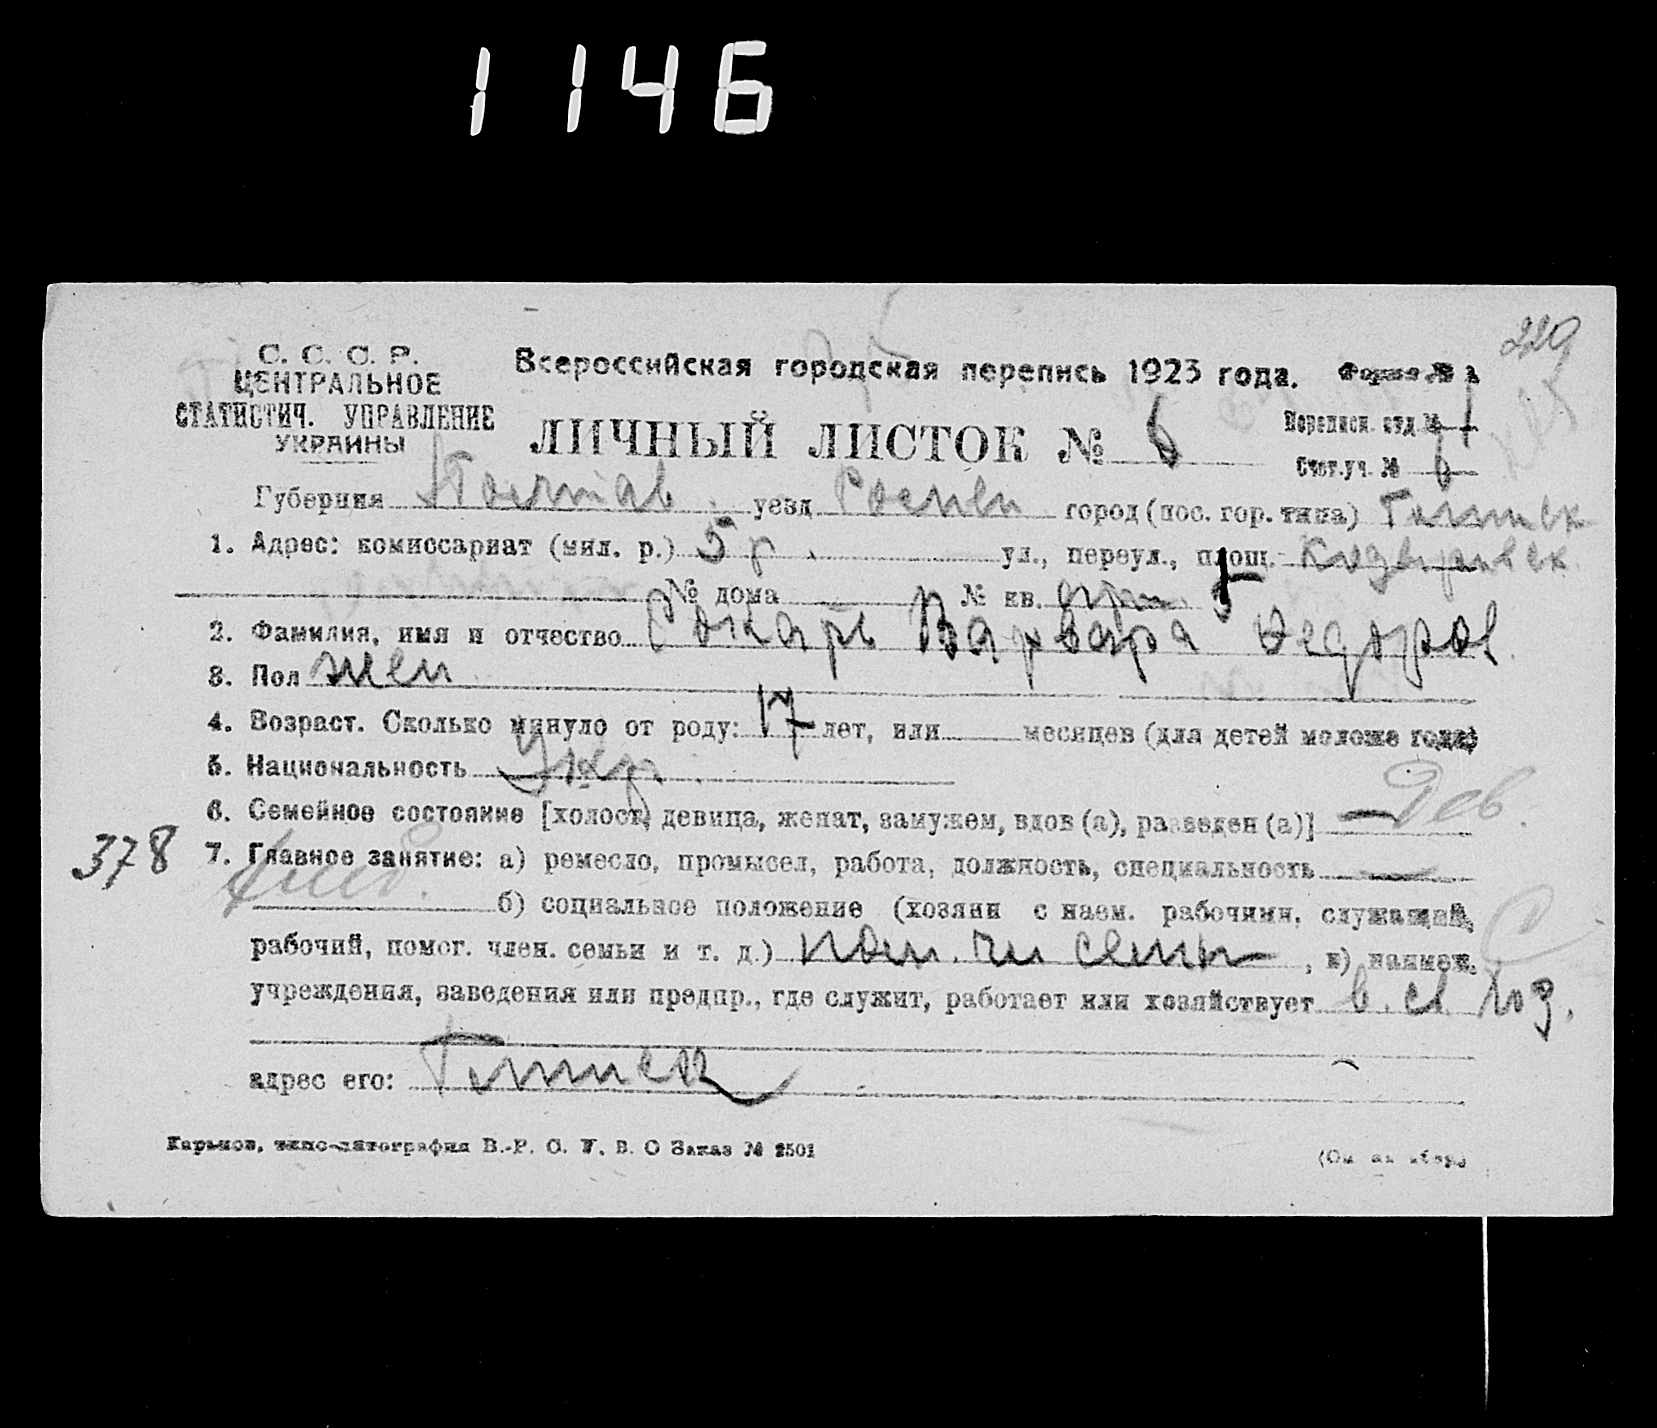 1146
229
С. С. С. Р.
ЦЕНТРАЛЬНОЕ
СТАТИСТИЧ. УПРАВЛЕНИЕ
УКРАИНЫ
Всероссийская городская перепись 1923 года. Форма № 1
ЛИЧНЫЙ ЛИСТОК № 6
Переписн. отд. № 1
Счет. уч. № 6
Губерния Полтав уезд Роменск город (пос. гор. типа)
1. Адрес: комиссариат (мил. р.) 5 р. ул., переул., площ.
№ дома № кв.
2. Фамилия, имя и отчество Сокарь Варвара Федоров
3. Пол жен
4. Возраст. Сколько минуло от роду: 17 лет, или месяцев (для детей моложе года)
5. Национальность Укр
6. Семейное состояние [холост, девица, женат, замужем, вдов (а), разведен (а)] Дев.
378
7. Главное занятие: а) ремесло, промысел, работа, должность, специальность —
б) социальное положение (хозяин с наем. рабочими, служащий,
рабочий, помог. член. семьи и т. д.) пом. чл семьи, в) наимен.
учреждения, заведения или предпр., где служит, работает или хозяйствует в св хоз.
адрес его:
Харьков, типо-литография В.-Р. С. У. В. О Заказ № 2501